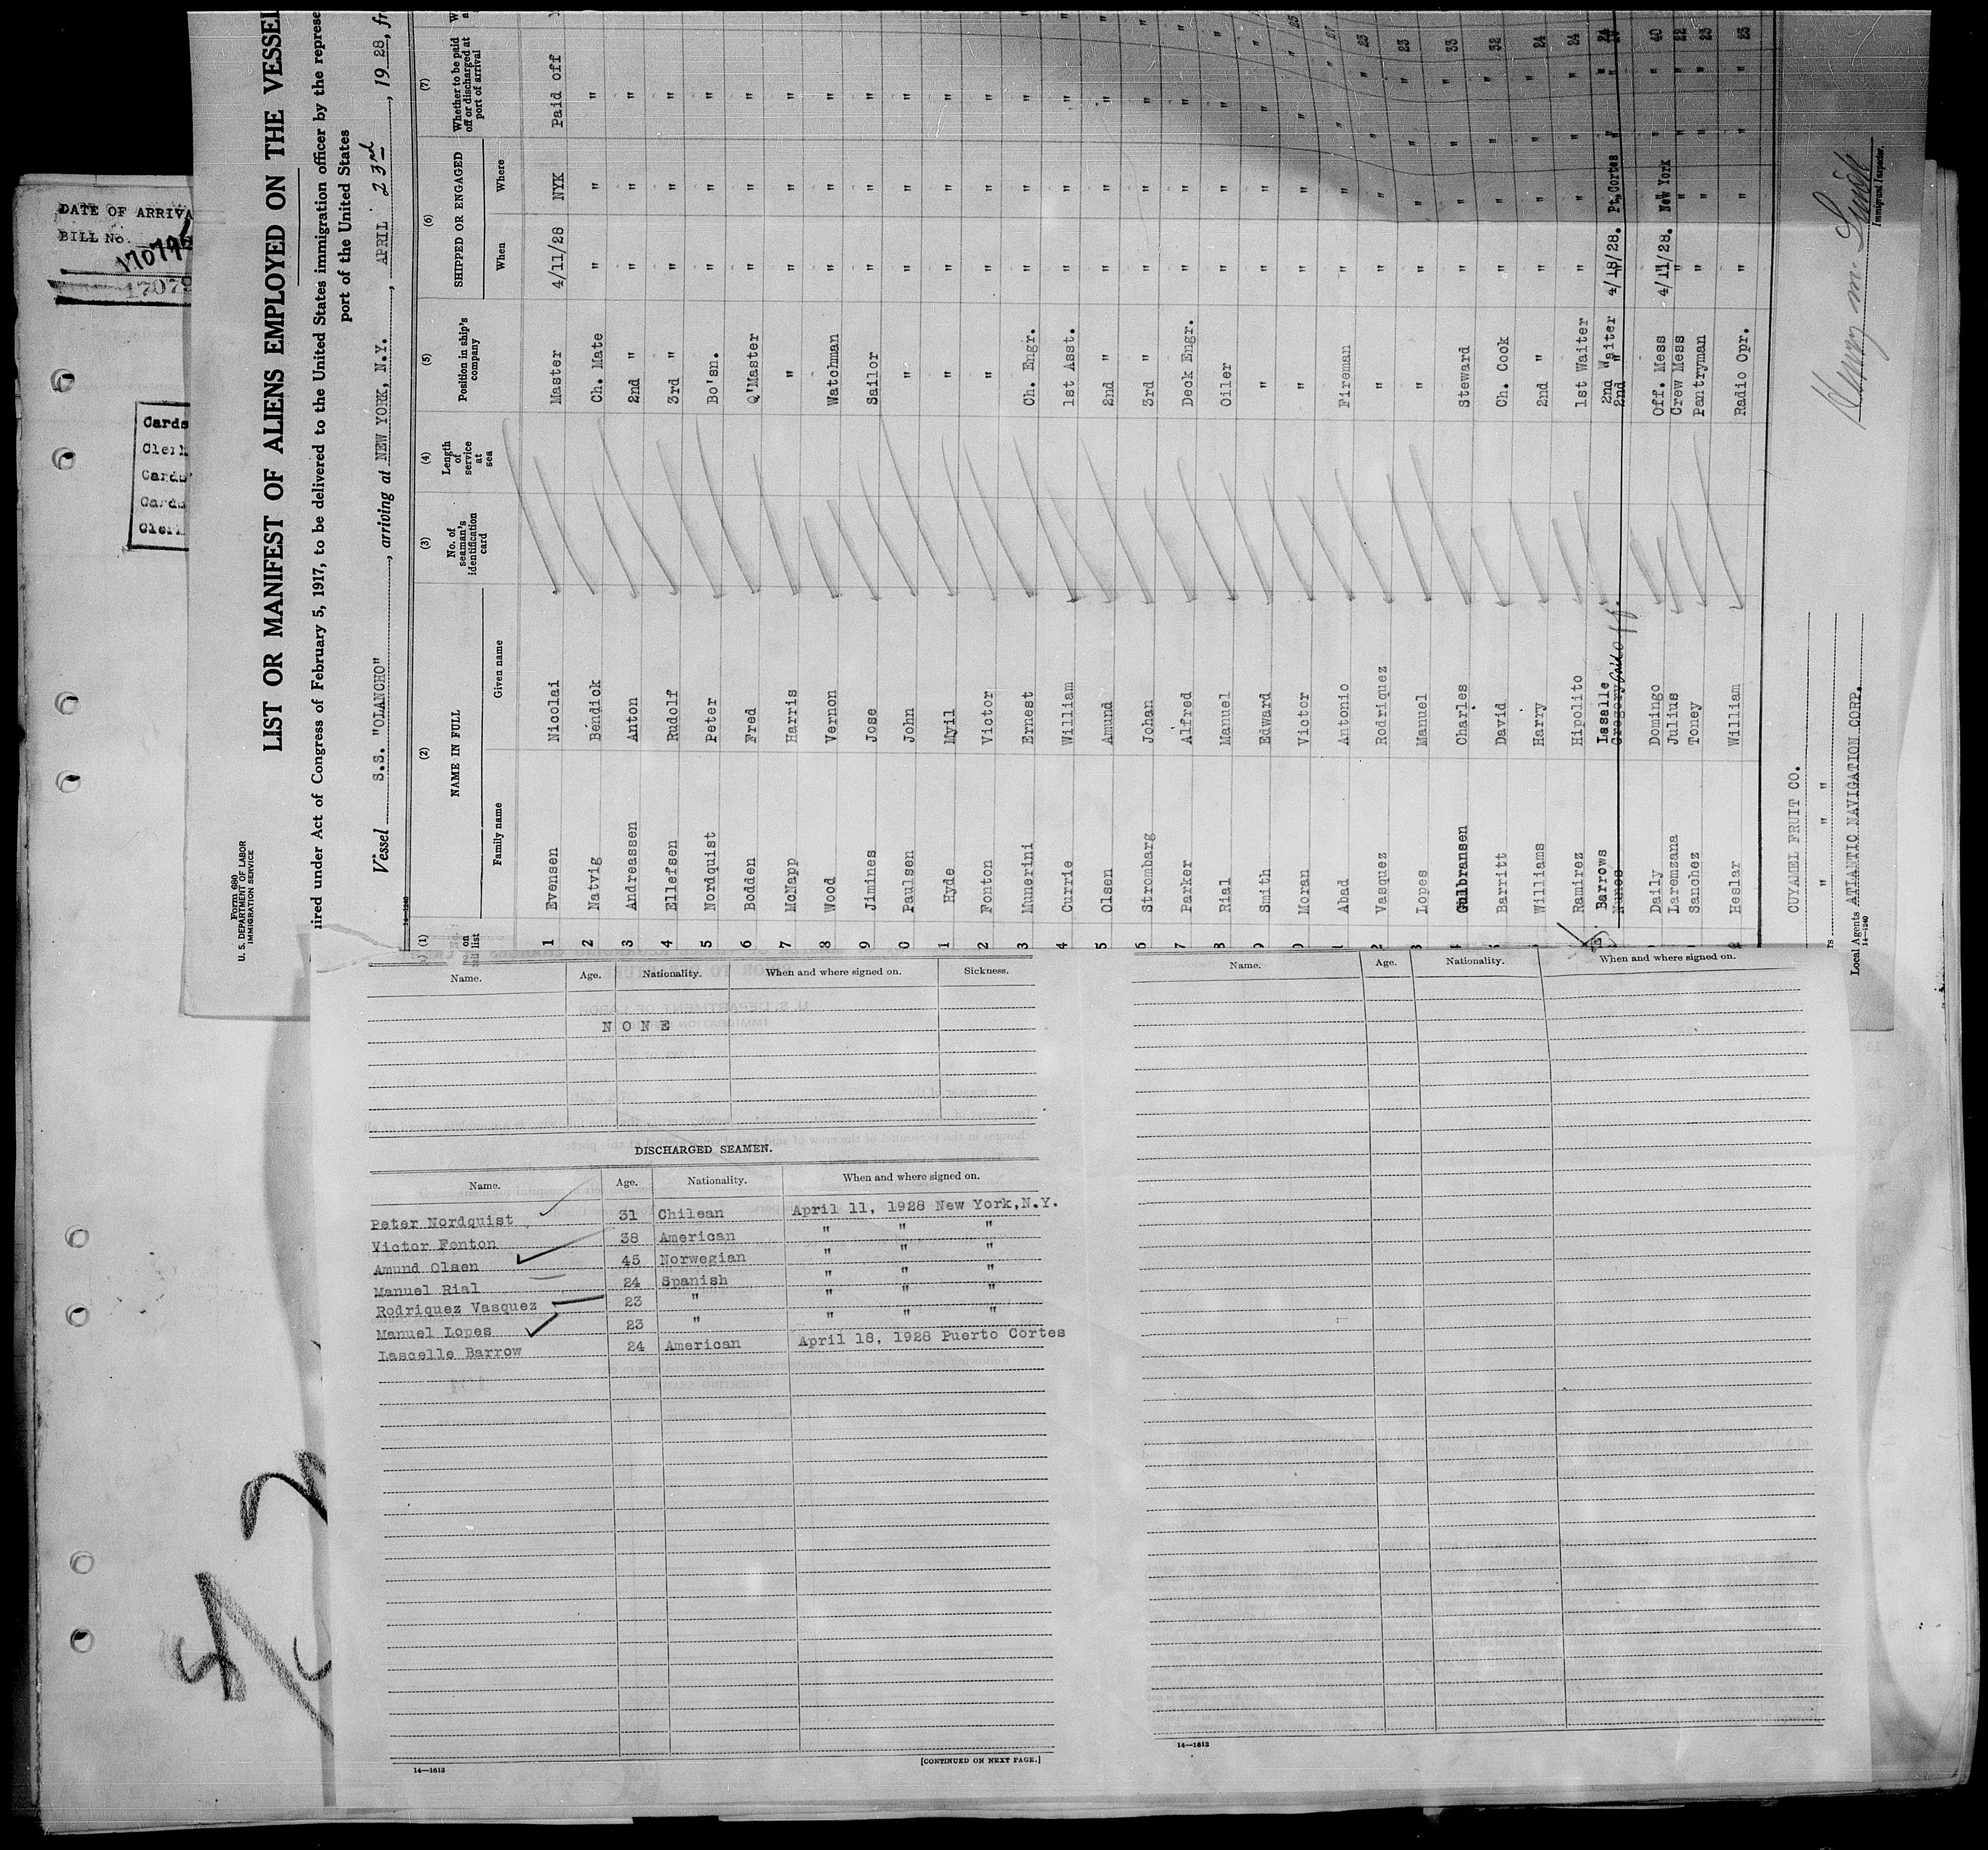 DATE OF ARRIVA
BILL No.
17079
Cards
Clerk
Cards
Cards
Clerk
Form 680
U. S. DEPARTMENT OF LABOR
IMMIGRATION SERVICE
LIST OR MANIFEST OF ALIENS EMPLOYED ON THE VESSEL
ired under Act of Congress of February 5, 1917, to be delivered to the United States immigration officer by the represe
port of the United States
Vessel S.S. "OLANCHO", arriving at NEW YORK, N.Y., APRIL 23rd, 1928, fr
(1) (2) (3) (4) (5) (6) (7)
on list NAME IN FULL No. of seaman's identification card Length of service at sea Position in ship's company SHIPPED OR ENGAGED Whether to be paid off or discharged at port of arrival
Family name Given name When Where
1 Evensen Nicolai Master 4/11/28 NYK Paid off
2 Natvig Bendick Ch. Mate " " "
3 Andreassen Anton 2nd " " " "
4 Ellefsen Rudolf 3rd " " " "
5 Nordquist Peter Bo'sn. " " "
6 Bodden Fred Q'Master " " "
7 McNapp Harris " " " "
8 Wood Vernon Watchman " " "
9 Jimines Jose Sailor " " "
0 Paulsen John " " " "
1 Hyde Myil " " " "
2 Fonton Victor " " " "
3 Munerini Ernest Ch. Engr. " " "
4 Currie William 1st Asst. " " "
5 Olsen Amund 2nd " " " "
6 Strombarg Johan 3rd " " " "
7 Parker Alfred Deck Engr. " " "
8 Rial Manuel Oiler " " "
9 Smith Edward " " " "
0 Moran Victor " " " "
1 Abad Antonio Fireman " " "
2 Vasquez Rodriquez " " " " 23
3 Lopes Manuel " " " " 23
4 Gulbransen Charles Steward " " " 33
5 Barritt David Ch. Cook " " " 32
Williams Harry 2nd " " " " 24
Ramirez Hipolito 1st Waiter " " " 24
Barrows Lasalle 2nd Waiter 4/18/28. Pt. Cortes " 24
Nunes Gregory 2nd " " " "
Daily Domingo Off. Mess 4/11/28. New York " 40
Laremzana Julius Crew Mess " " " 22
Sanchez Toney Pantryman " " " 23
Heslar William Radio Opr. " " " 23
CUYAMEL FRUIT CO.
" " "
Local Agents ATLANTIC NAVIGATION CORP.
14—1240
Immigrant Inspector.
Name. Age. Nationality. When and where signed on. Sickness.
NONE
DISCHARGED SEAMEN.
Name. Age. Nationality. When and where signed on.
Peter Nordquist 31 Chilean April 11, 1928 New York, N.Y.
Victor Fonton 38 American " " "
Amund Olsen 45 Norwegian " " "
Manuel Rial 24 Spanish " " "
Rodriquez Vasquez 23 " " " "
Manuel Lopes 23 " " " "
Lascelle Barrow 24 American April 18, 1928 Puerto Cortes
14—1613
[CONTINUED ON NEXT PAGE.]
Name. Age. Nationality. When and where signed on.
14—1613